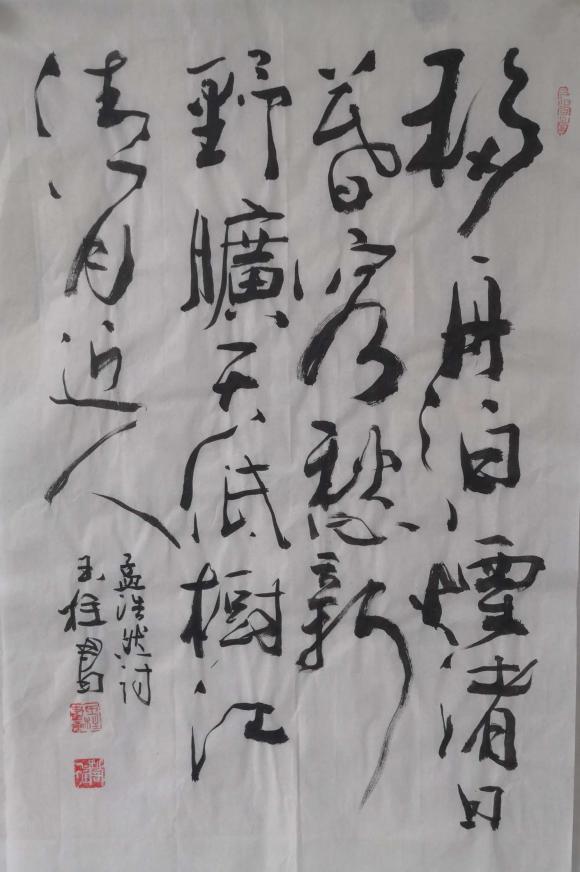 移舟泊煙渚日
暮客愁新
野曠天低樹江
清月近人
孟浩然詩
玉柱書